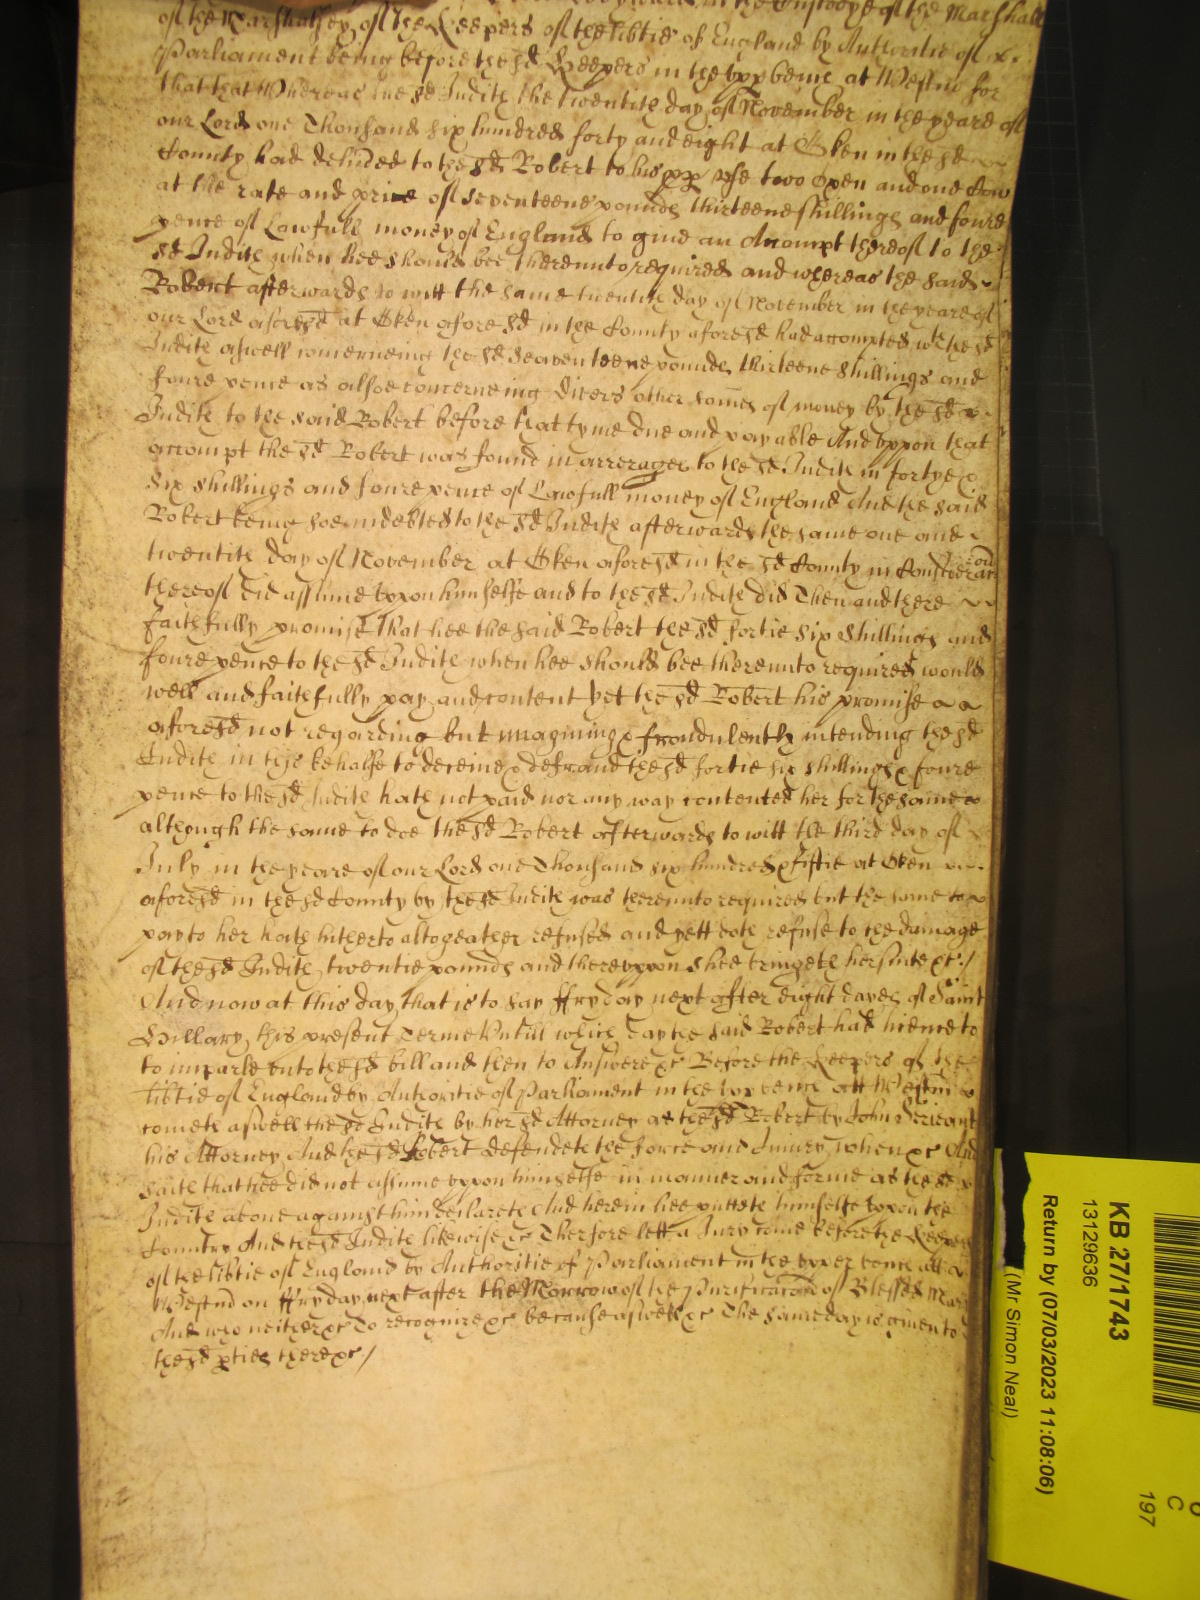 in the Custodye of the Marshall
of the Marshalsey of the Keepers of the libtie of England by Authoritie of x.
Parliament being before the sd Keepers in the vpp bench at Westm for
that that Whereas the sd Judith the twentith day of November in the yeare of
our Lord one Thousand six hundred forty and eight at Oken in the sd
County had deliued to the sd Robert to his pp vse two Oxen and one Cow
at the rate and price of seventeene pounds thirteene shillings and foure
pence of Lawfull money of England to giue an Accompt thereof to the
sd Judith when hee should bee therevnto required and whereas the said
Robert afterwards to witt the same twentith day of November in the yeare of
our Lord aforesd at Oken aforesd in the County aforesd had accompted wth the sd
Judith aswell concerneing the sd seaventeene pounds thirteene shillings and
foure pence as alsoe concerneing divers other somes of money by the sd
Judith to the said Robert before that tyme due and payable And vppon that
accompt the sd Robert was found in arrerages to the sd Judith in fortye
six shillings and foure pence of Lawfull money of England And the said
Robert being soe indebted to the sd Judith afterwards the same one and
twentith day of November at Oken aforesd in the sd County in Consideracon
thereof did assume vppon himselfe and to the sd Judith did Then and there
faithfully promise That hee the said Robert the sd fortie six shillings and
foure pence to the sd Judith when hee should bee therevnto required would
well and faithfully pay and content Yet the sd Robert his promise
aforesd not regarding but imagining & fraudulently intending the sd
Judith in this behalfe to deceive & defraud the sd fortie six shillings & foure
pence to the sd Judith hath not paid nor any way contented her for the same
although the same to doe the sd Robert afterwards to witt the third day of
July in the yeare of our Lord one Thousand six hundred & fiftie at Oken
aforesd in the sd County by the sd Judith was therevnto required but the same to
pay to her hath hitherto altogeather refused and yett doth refuse to the damage
of the sd Judith twentie pounds and therevppon shee bringeth her suite &c /
And now at this day That is to say ffryday next after eight dayes of Saint
Hillary this present Terme Vntill which day the said Robert had licence to
to imparle vnto the sd bill and then to Answere &c Before the Keepers of the
libtie of England by Authoritie of Parliament in the vpp bench att Westm
cometh aswell the sd Judith by her sd Attorney as the sd Robert by John
his Attorney And the sd Robert defendeth the Force and Iniury when &c And
saith that hee did not assume vppon himselfe in manner and forme as the sd
Judith aboue against him declareth And herein hee putteth himselfe vpon the
Country And the sd Judith likewise &c Therfore lett a Jury come before the Keepers
of the libtie of England by Authoritie of Parliament in the vpper bench att
Westm on ffryday next after the Morrow of the Purificacon of Blessed Mary
And who neither &c To recognize &c because aswell &c The same day is giuen to
the sd pties there &c /
KB 27/1743
13129636
Return by (07/03/2023 11:08:06)
(Mr Simon Neal)
C
197